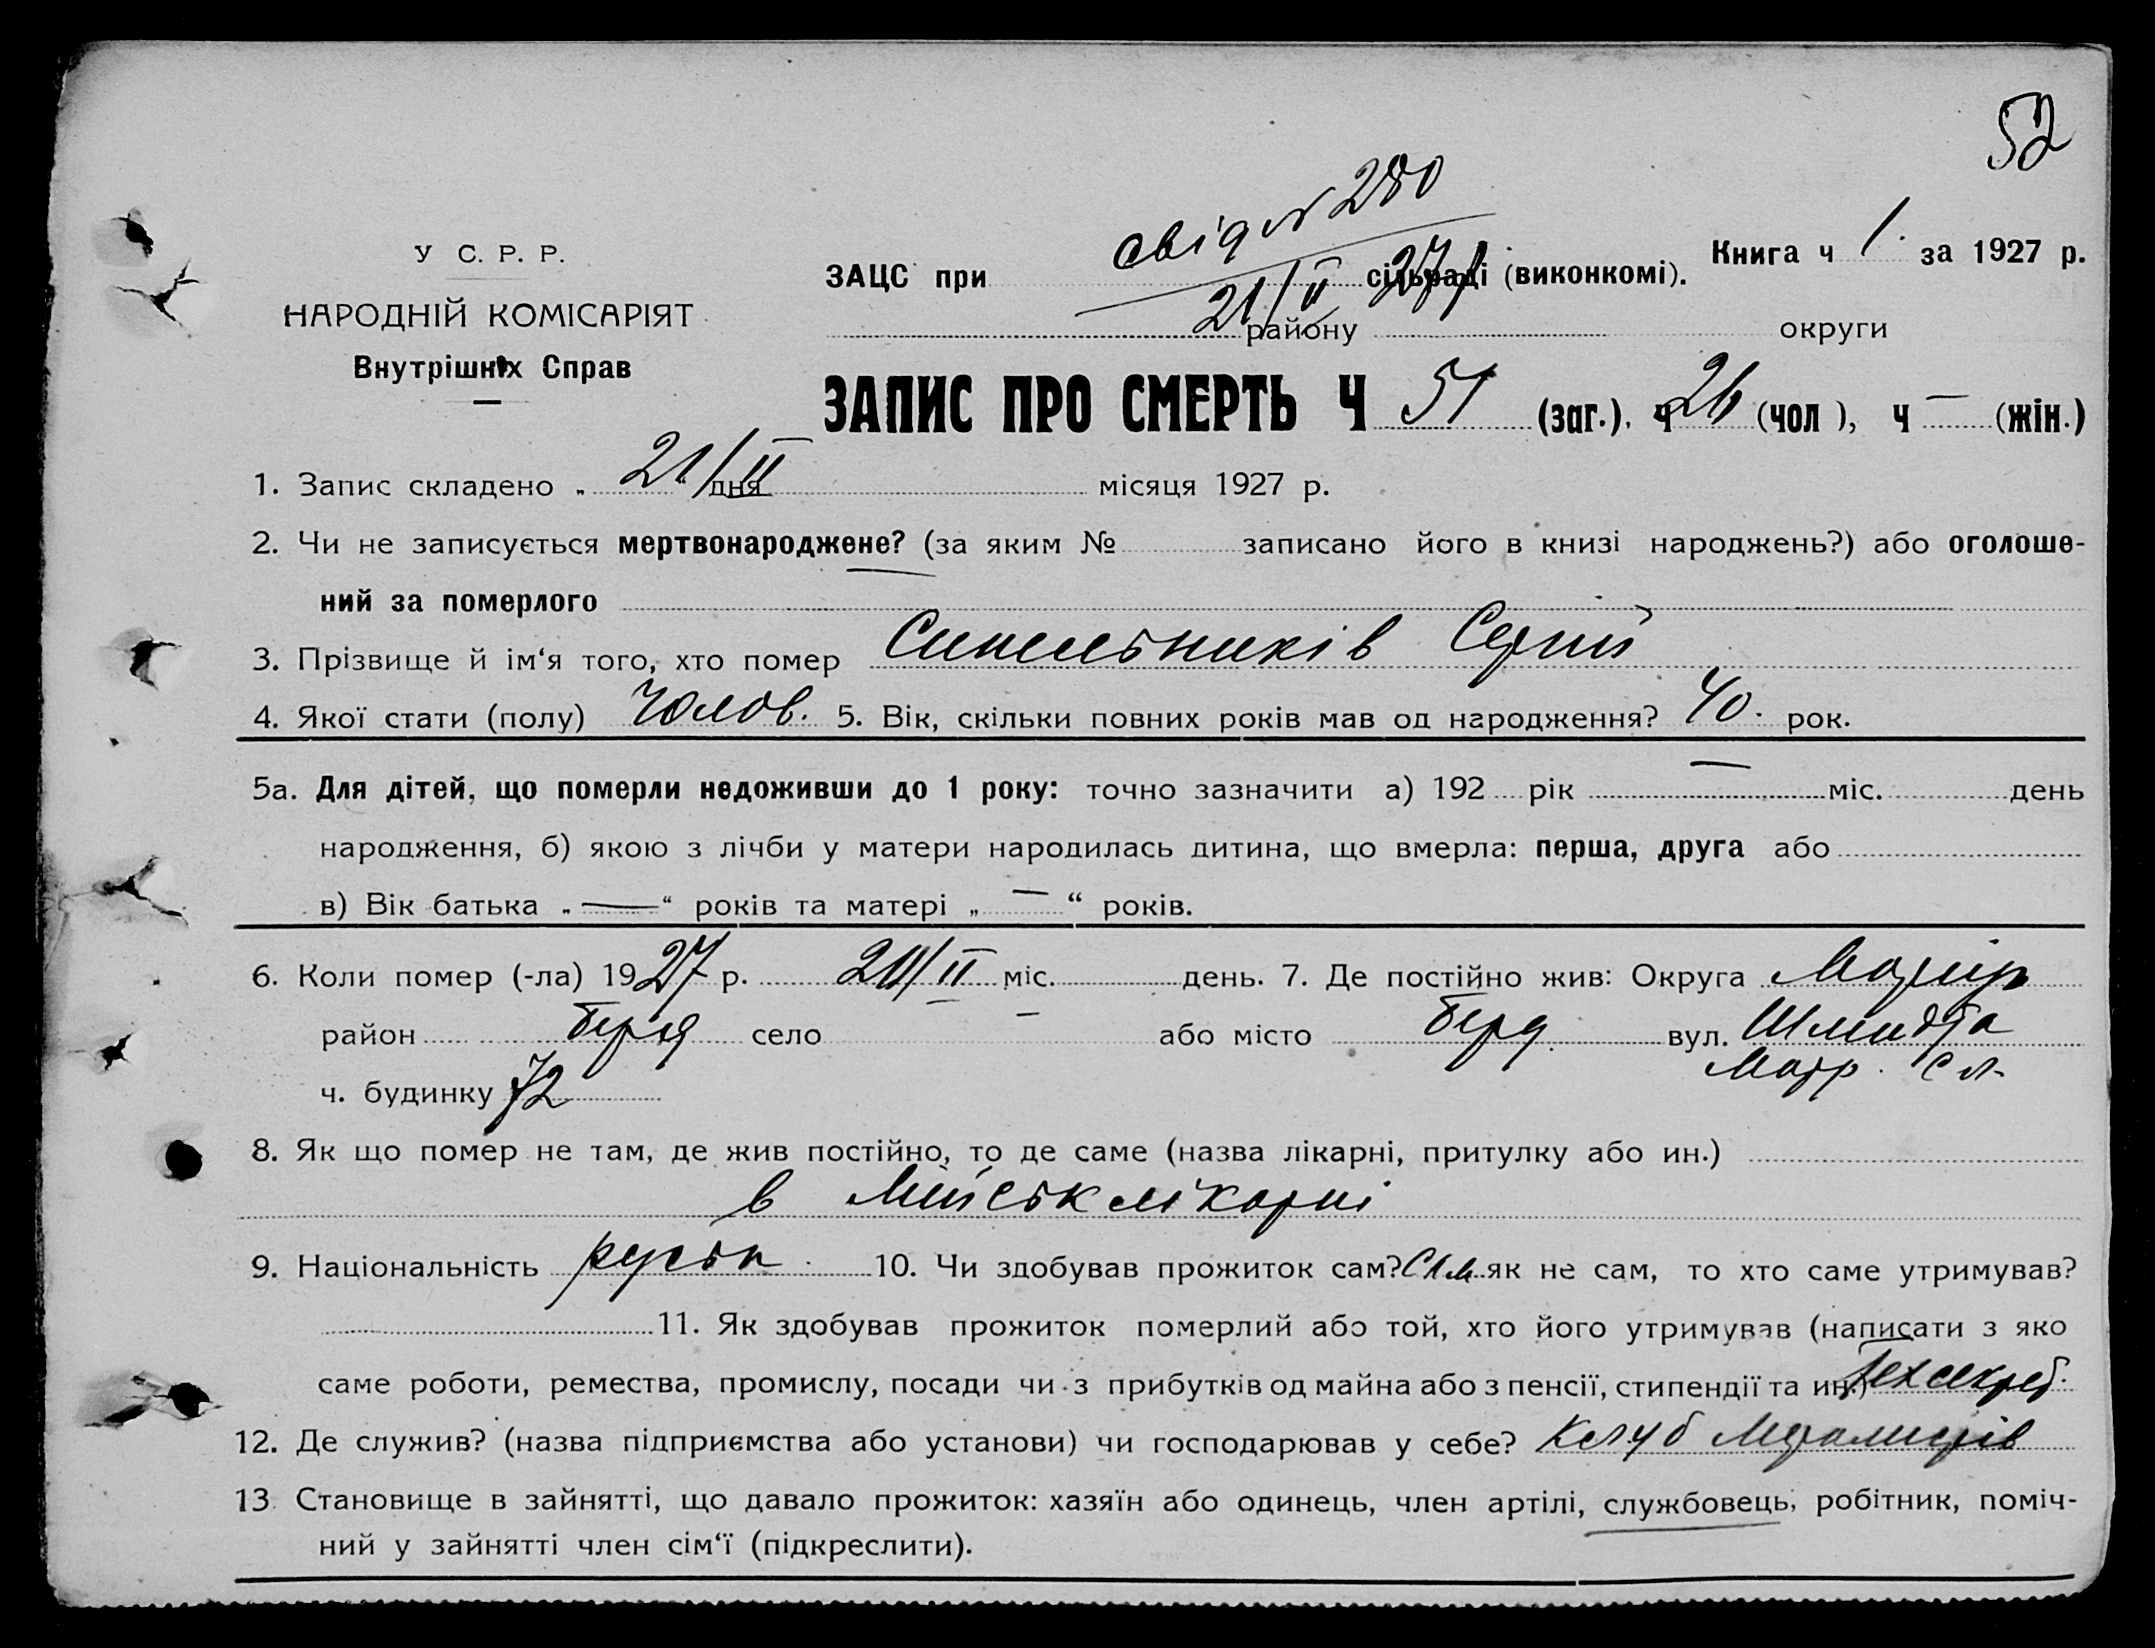 52
свід № 280
У С. Р. Р.
ЗАЦС при сільраді (виконкомі). Книга ч 1. за 1927 р.
21/II 27 р
НАРОДНІЙ КОМІСАРІЯТ
району округи
Внутрішніх Справ
ЗАПИС ПРО СМЕРТЬ Ч 51 (заг.), ч 26 (чол), ч — (жін.)
1. Запис складено „ 21/II дня місяця 1927 р.
2. Чи не записується мертвонароджене? (за яким № записано його в книзі народжень?) або оголоше-
ний за померлого
3. Прізвище й ім‘я того, хто помер Синельників Сергій
4. Якої стати (полу) Чолов. 5. Вік, скільки повних років мав од народження? 40. рок.
5а. Для дітей, що померли недоживши до 1 року: точно зазначити а) 192 рік — міс. день
народження, б) якою з лічби у матери народилась дитина, що вмерла: перша, друга або
в) Вік батька „ — “ років та матері „ — “ років.
6. Коли помер (-ла) 1927 р. 20/II міс. день. 7. Де постійно жив: Округа Маріуп
район Берд село — або місто Берд. вул. Шмидта
ч. будинку 72 сл.
8. Як що помер не там, де жив постійно, то де саме (назва лікарні, притулку або ин.)
в Міськ лікарні
9. Національність руськ. 10. Чи здобував прожиток сам? Сам як не сам, то хто саме утримував?
11. Як здобував прожиток померлий або той, хто його утримував (написати з яко
саме роботи, ремества, промислу, посади чи з прибутків од майна або з пенсії, стипендії та ин.) Техсекрет.
12. Де служив? (назва підприємства або установи) чи господарював у себе? Клуб Металистів
13 Становище в зайнятті, що давало прожиток: хазяїн або одинець, член артілі, службовець, робітник, поміч-
ний у зайнятті член сім‘ї (підкреслити).